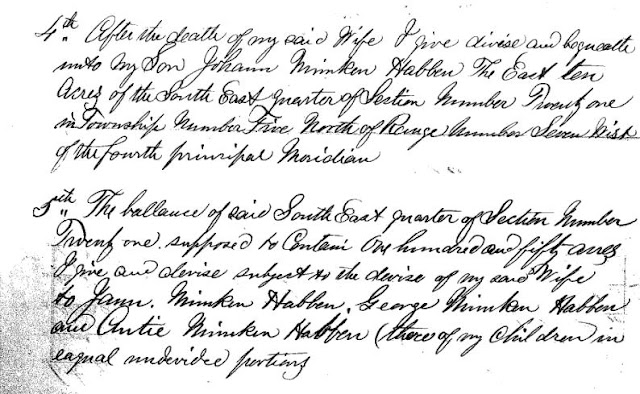 4th After the death of my said Wife I give divise and bequeathe
unto my Son Johann Mimken Habben The East ten
Acres of the South East quarter of Section Number Twenty one
in Township Number Five North of Range Number Seven West
of the fourth principal Meridian
5th The ballance of said South East quarter of Section Number
Twenty one. supposed to Contain One hundred and fifty acres
I give and devise subject to the devise of my said Wife
to Jann. Mimken Habben, George Mimken Habben
and Antie Mimken Habben (three of my Children in
eaqual undevided portions